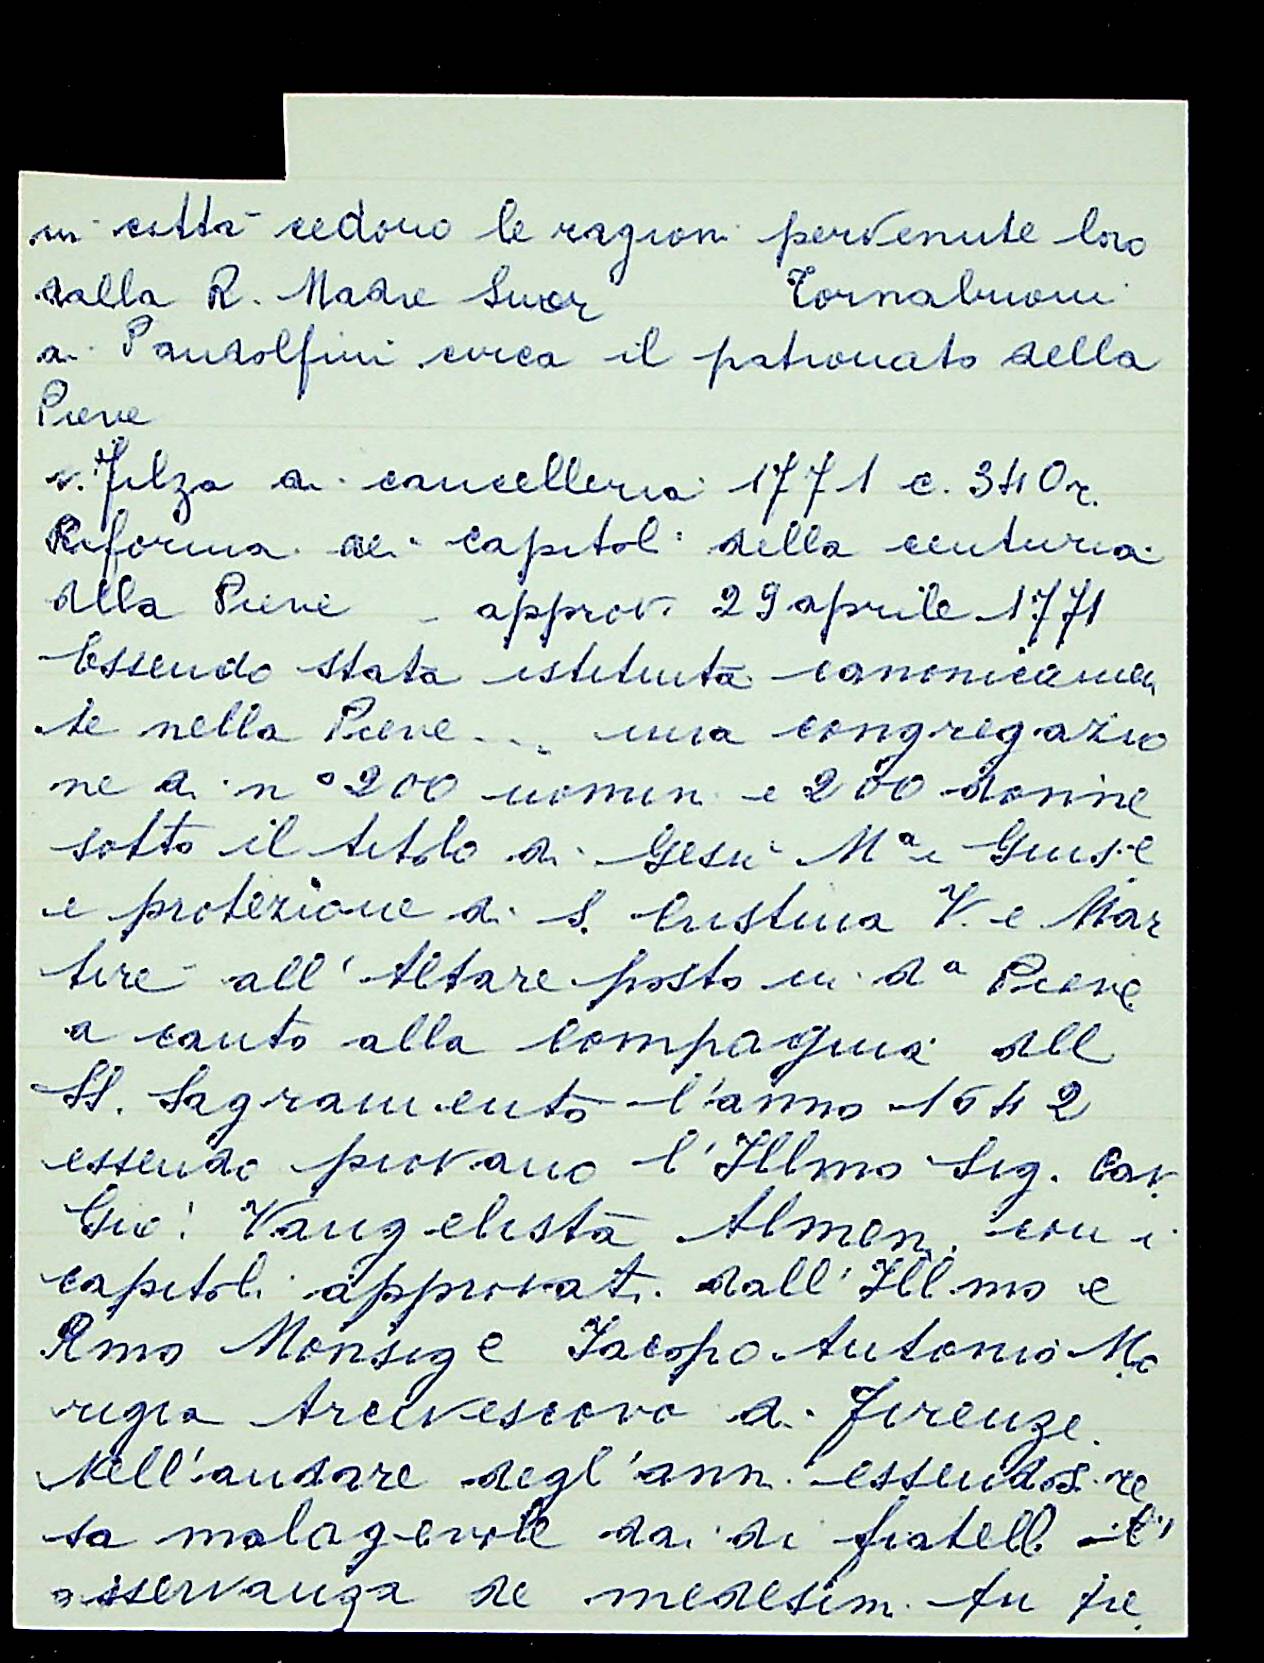 in città cedono le ragioni pervenute loro
dalla R. Madre Suor Tornabuoni
ai Pandolfini circa il patronato della
Pieve
v. Filza di cancelleria 1771 c. 340r.
Riforma dei capitoli della centuria
della Pieve - approv. 29 aprile 1771
Essendo stata istituita canonicamen
te nella Pieve... una congregazio
ne di n° 200 uomini e 200 donne
sotto il titolo di Gesù Mª e Gius.e
e protezione di S. Cristina V. e Mar
tire all'Altare posto in dª Pieve
a canto alla Compagnia dell
SS. Sagramento l'anno 1542
essendo piovano l'Illmo Sig. Cav.
Gio: Vangelista Almeni con i
capitoli approvati dall'Illmo e
Rmo Monsig e Jacopo Antonio Mo
rigia Arcivescovo di Firenze.
Nell'andare degl'anni essendosi re
sa malagevole dai di fratelli l'
osservanza de medesimi fu